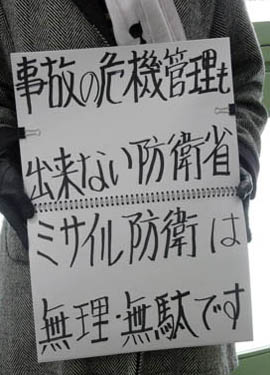 事故の危機管理も
出来ない防衛省
ミサイル防衛は
無理・無駄です